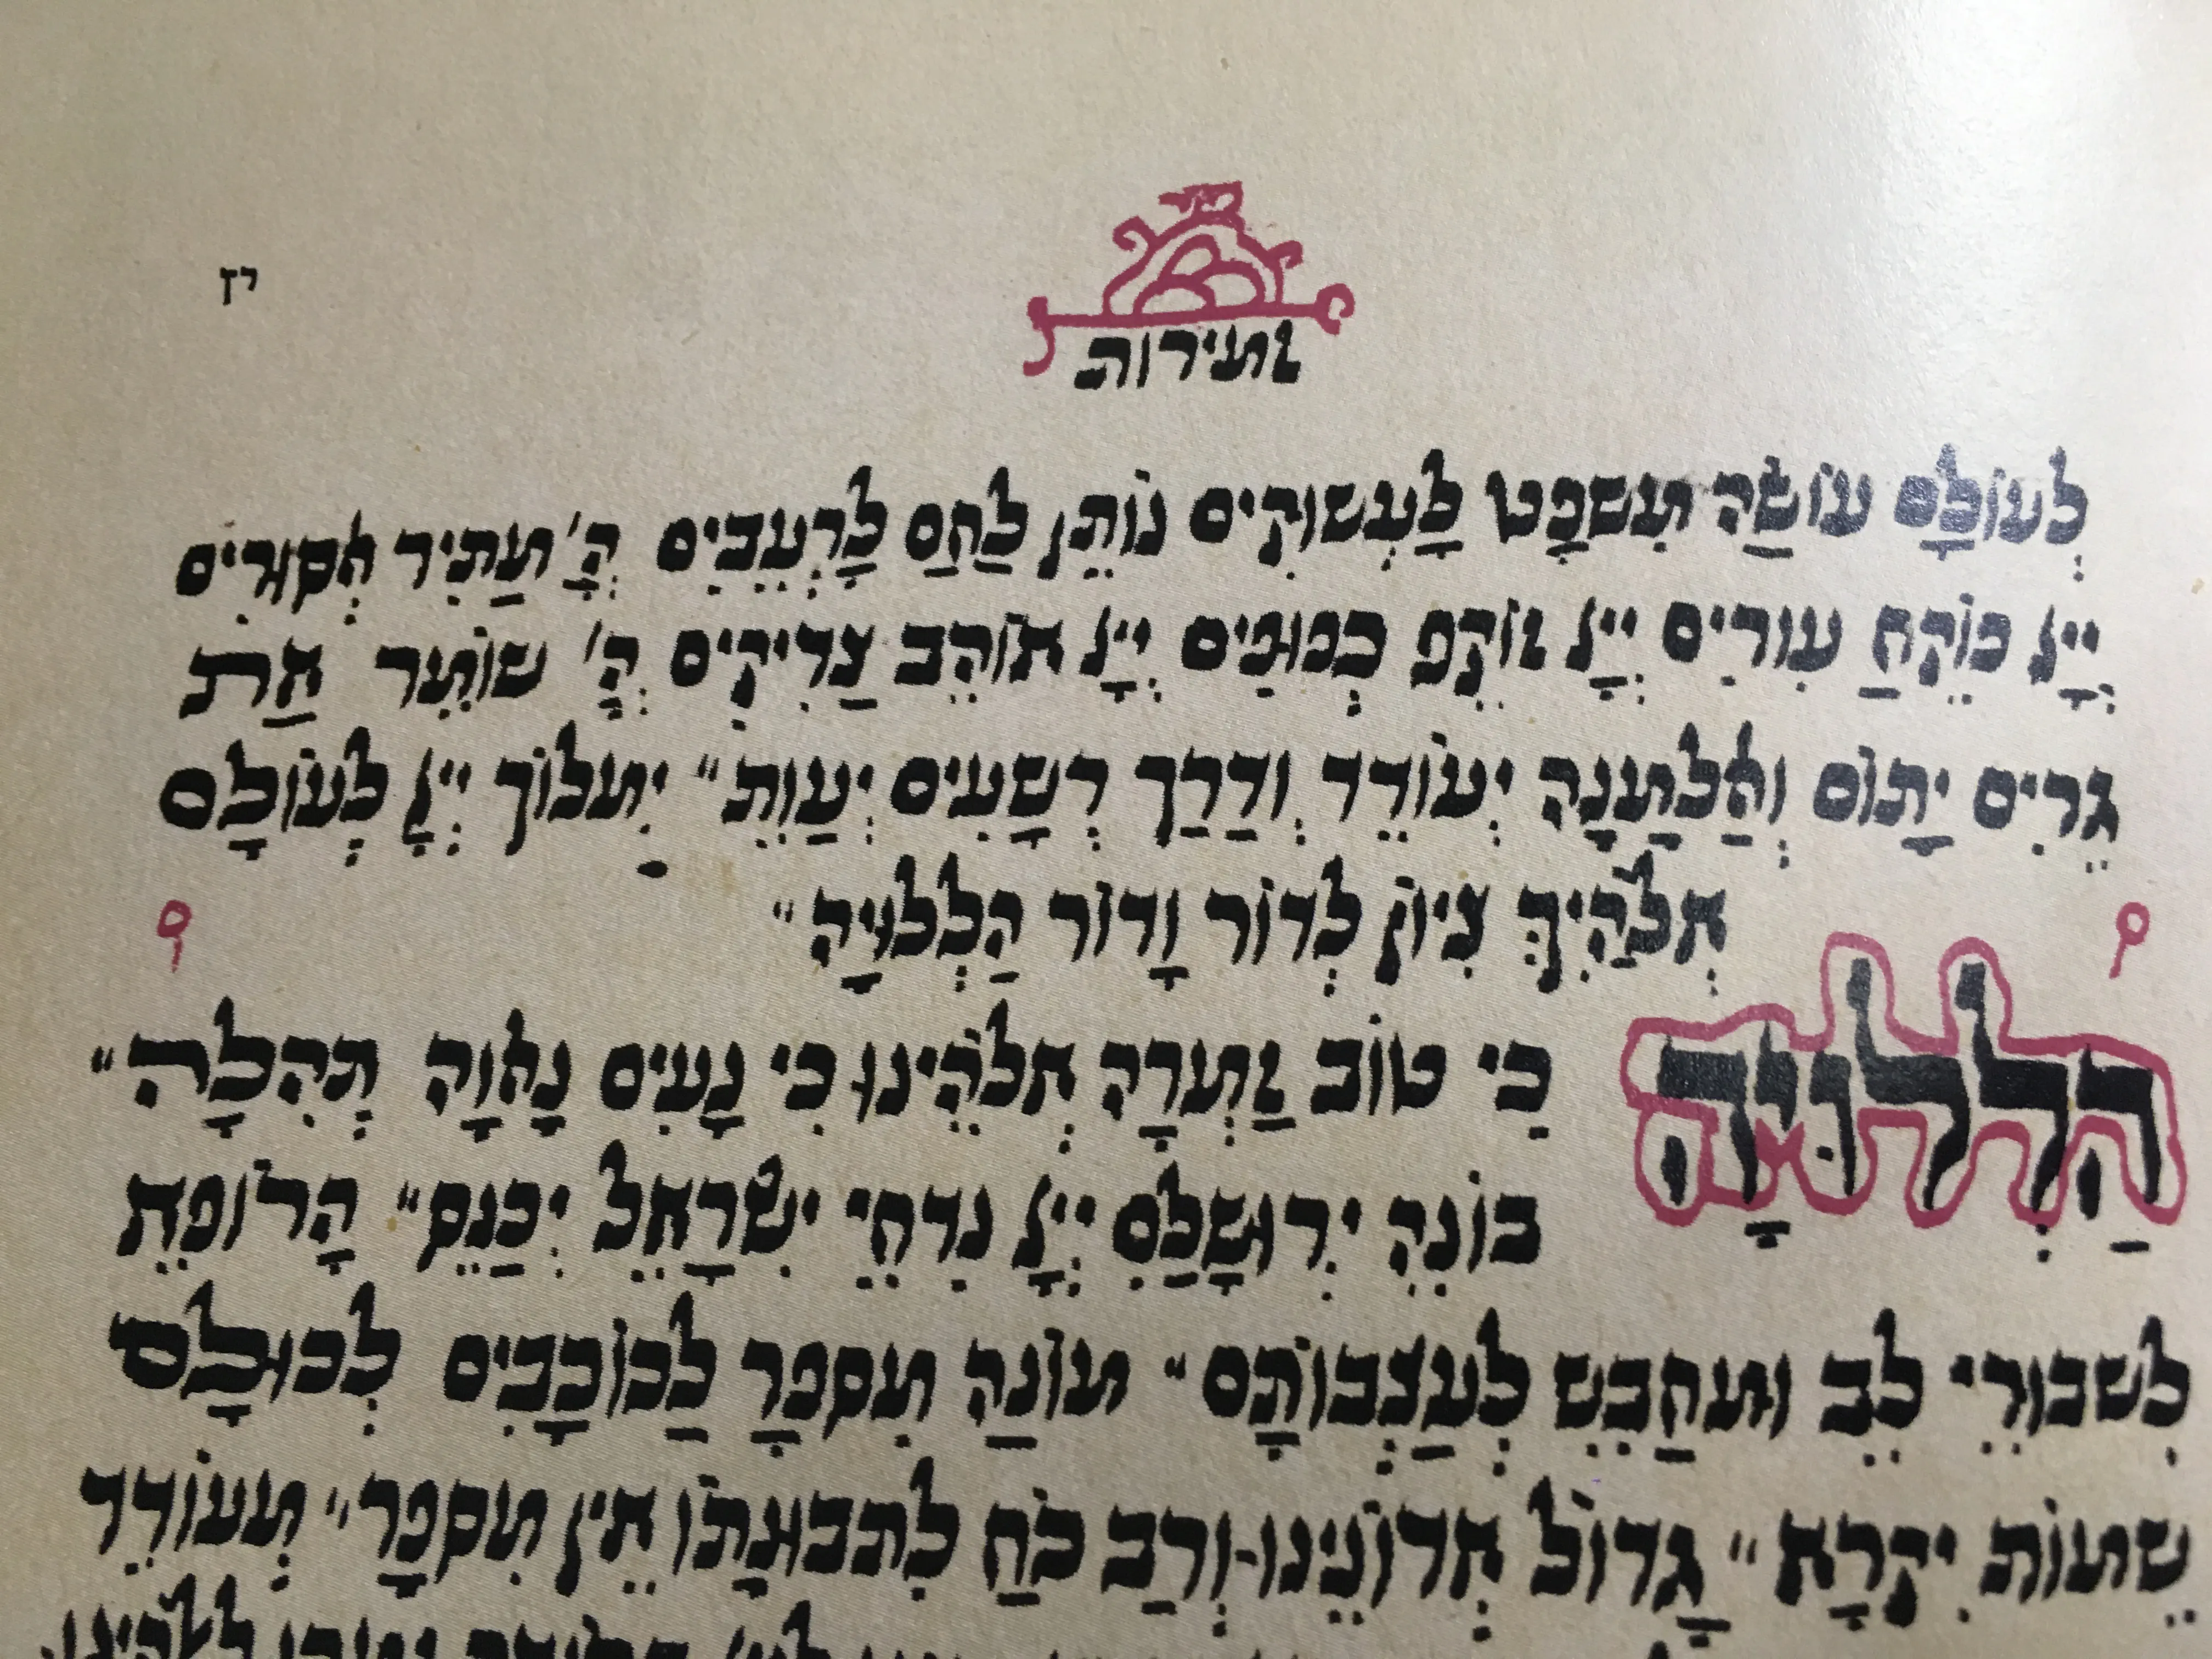 יז
זמירות
לעולם עושה משפט לעשוקים נותן לחם לרעבים ה' מתיר אסורים
ייי פוקח עורים ייי זוקף כפופים ייי אוהב צדיקים ה' שומר את
גרים יתום ואלמנה יעודד ודרך רשעים יעות״ ימלוך ייי לעולם
אלהיך ציון לדור ודור הללויה״
הללויה כי טוב זמרה אלהינו כי נעים נאוה תהלה״
בונה ירושלם ייי נדחי ישראל יכנס״ הרופא
לשבורי לב ומחבש לעצבותם״ מונה מספר לכוכבים לכולם
שמות יקרא״ גדול אדונינו ורב כח לתבונתו אין מספר״ מעודד